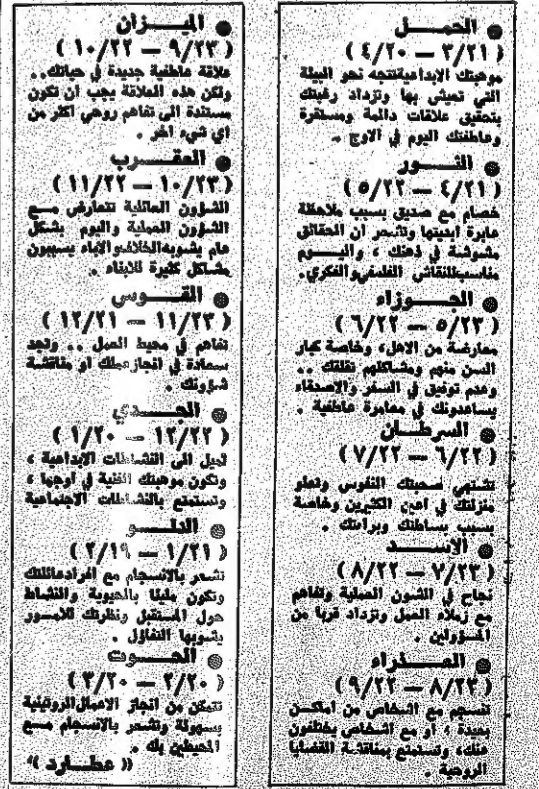 ● الحمــل
( ٣/٢١ — ٤/٢٠ )
موهبتك الابداعية تتجه نحو البيئة
التي تعيش بها وتزداد رغبتك
بتحقيق علاقات دائمة ومستقرة
وعاطفتك اليوم في الاوج .
● الثــور
( ٤/٢١ — ٥/٢٢ )
خصام مع صديق بسبب ملاحظة
عابرة ابديتها وتشعر ان الحقائق
مشوشة في ذهنك ، واليــوم
مناسب للنقاش الفلسفي والفكري.
● الجــوزاء
( ٥/٢٣ — ٦/٢٢ )
معارضة من الاهل، وخاصة كبار
السن منهم ومشاكلهم تقلقك ..
وعدم توفيق في السفر والاصدقاء
يساعدونك في مغامرة عاطفية .
● السرطــان
( ٦/٢٢ — ٧/٢٢ )
تشتهي صحبتك النفوس وتعلو
منزلتك في اعين الكثيرين وخاصة
بسبب بساطتك وبراءتك .
● الاســد
( ٧/٢٣ — ٨/٢٢ )
نجاح في الشؤون العملية وتفاهم
مع زملاء العمل وتزداد قربا من
المسؤولين .
● العــذراء
( ٨/٢٣ — ٩/٢٢ )
تنسجم مع اشخاص من اماكــن
بعيدة ، او مع اشخاص يختلفون
عنك، وتستمتع بمناقشة القضايا
الروحية .
● الميــزان
( ٩/٢٣ — ١٠/٢٢ )
علاقة عاطفية جديدة في حياتك..
ولكن هذه العلاقة يجب ان تكون
مستندة الى تفاهم روحي اكثر من
اي شيء اخر .
● العقــرب
( ١٠/٢٣ — ١١/٢٢ )
الشؤون العائلية تتعارض مــع
الشؤون العملية واليوم بشكل
عام يشوبه الخلاف والاباء يسببون
مشاكل كثيرة للابناء .
● القــوس
( ١١/٢٣ — ١٢/٢١ )
تفاهم في محيط العمل .. وتجد
سعادة في انجاز عملك او مناقشة
شؤونك .
● الجــدي
( ١٢/٢٢ — ١/٢٠ )
تميل الى النشاطات الابداعية ،
وتكون موهبتك الفنية في اوجها ،
وتستمتع بالنشاطات الاجتماعية
● الدلــو
( ١/٢١ — ٢/١٩ )
تشعر بالانسجام مع افراد عائلتك
وتكون مليئا بالحيوية والنشاط
حول المستقبل ونظرتك للامــور
يشوبها التفاؤل .
● الحــوت
( ٢/٢٠ — ٣/٢٠ )
تتمكن من انجاز الاعمال الروتينية
بسهولة وتشعر بالانسجام مــع
المحيطين بك .
(( عطــارد ))